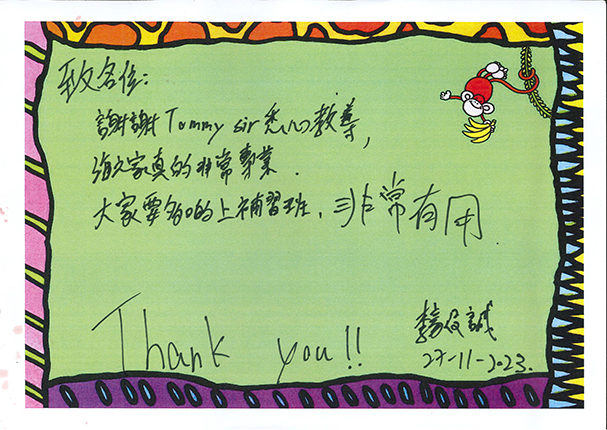 致各位:
謝謝 Tommy sir 悉心教導,
真的非常專業.
大家要多D的上補習班, 非常有用.
Thank you!!
誠
27-11-2023.